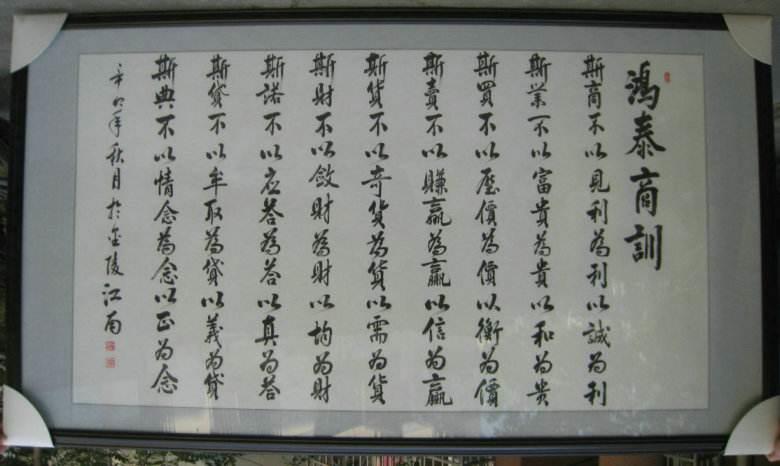 鴻泰商訓
斯商不以見利為利以誠為利
斯業不以富貴為貴以和為貴
斯買不以壓價為價以衡為價
斯賣不以賺贏為贏以信為贏
斯貨不以奇貨為貨以需為貨
斯財不以斂財為財以均為財
斯諾不以应答為答以真為答
斯貸不以牟取為貸以義為貸
斯典不以情念為念以正為念
辛卯年秋月於金陵江南